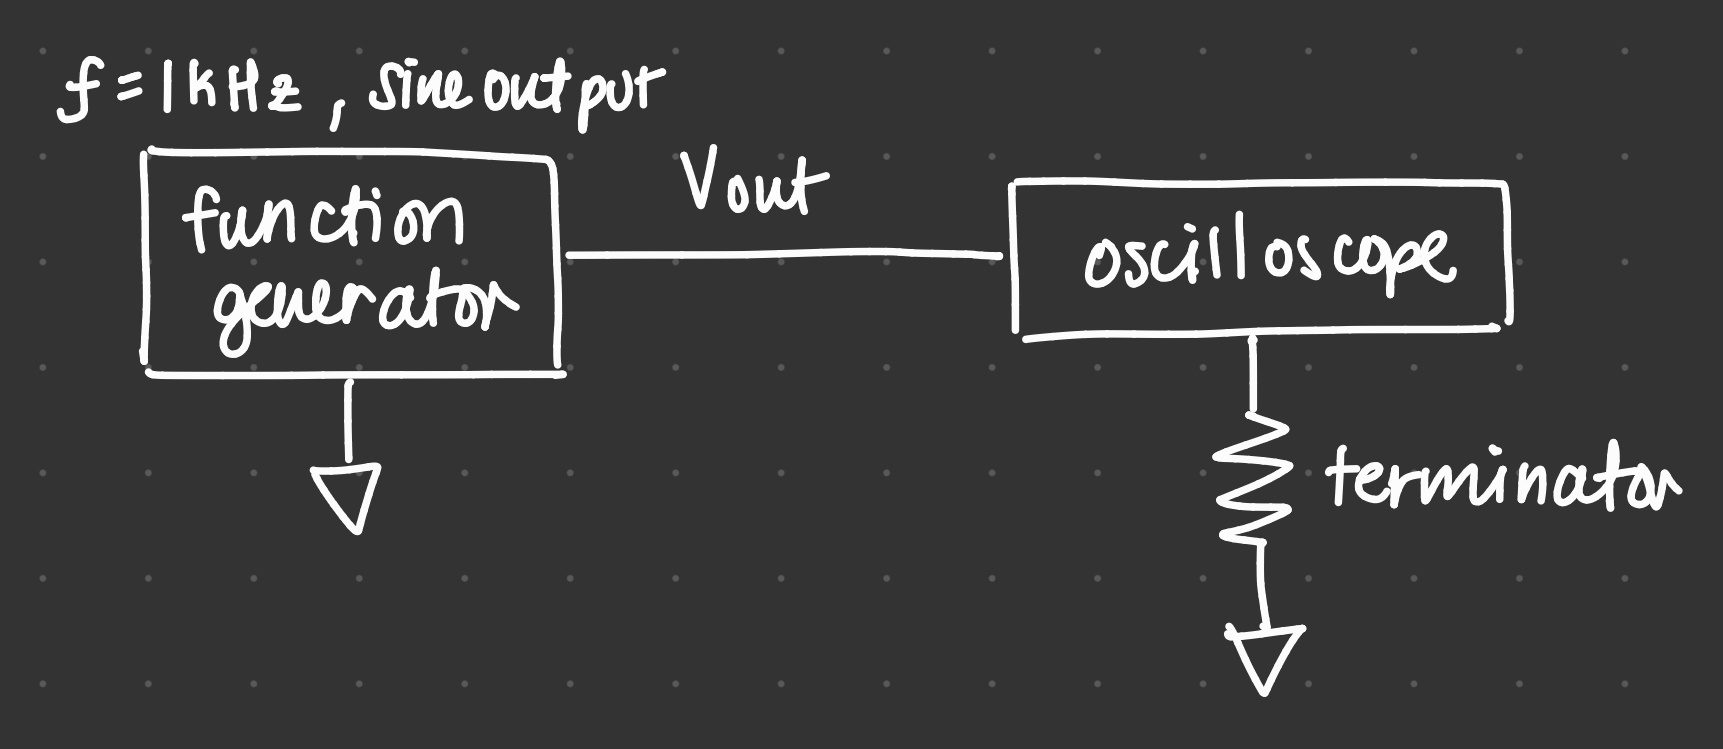 f = 1kHz, sine output
Vout
function
generator
oscilloscope
terminator